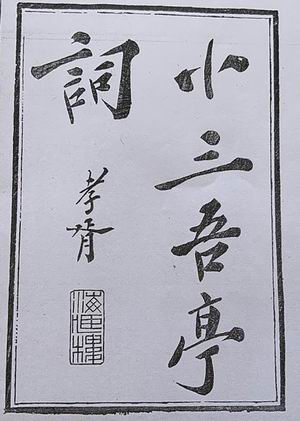 小三吾亭
詞
孝胥
海藏樓